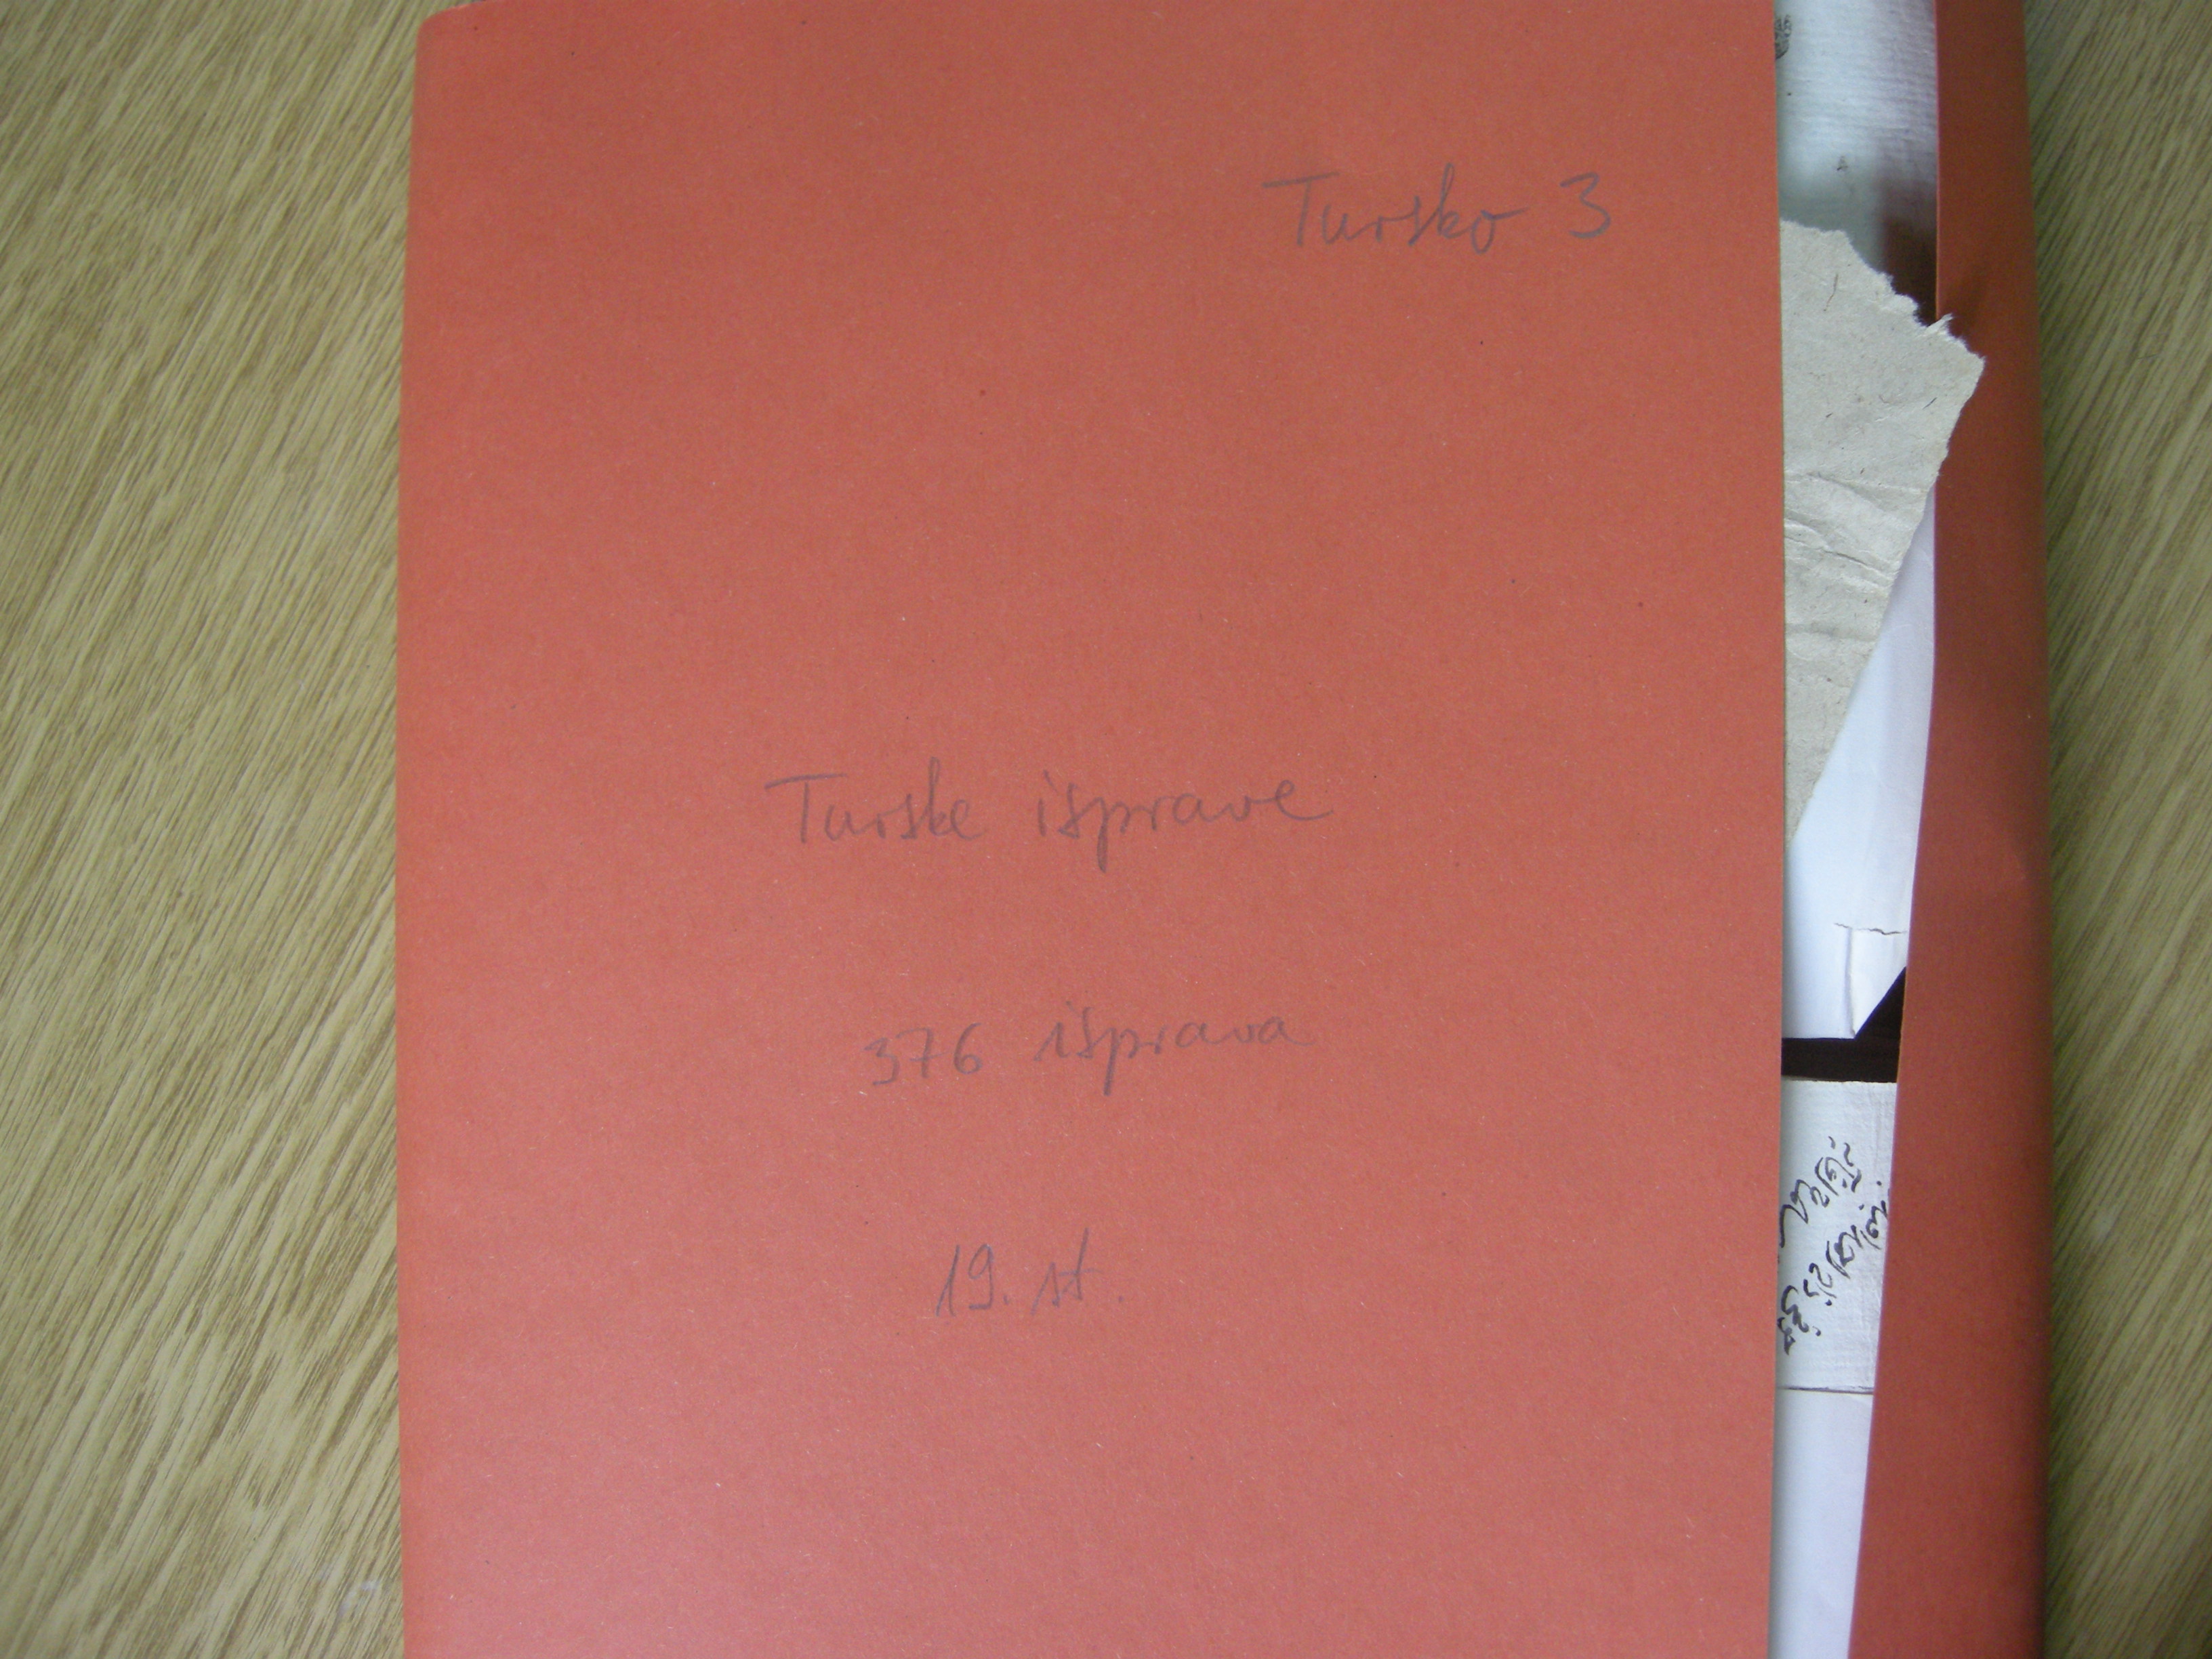 Tursko 3
Turske isprave
376 isprava
19. st.